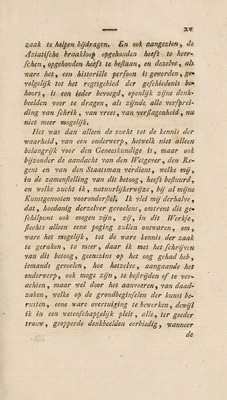 xv
zaak te helpen bijdragen. En ook aangezien, de
Aziatische braakloop opgehouden heeft te heer-
schen, opgehouden heeft te bestaan, en dezelve, als
ware het, een historiële persoon is geworden, ge-
volgelijk tot het regtsgebied der geschiedenis be-
hoort, is een ieder bevoegd, openlijk zijne denk-
beelden voor te dragen, als zijnde alle verspreï-
ding van schrik, van vrees, van verslagenheid, nu
niet meer mogelijk.
Het was dan alleen de zucht tot de kennis der
waarheid, van een onderwerp, hetwelk niet alleen
belangrijk voor den Geneeskundige is, maar ook
bijzonder de aandacht van den Wetgever, den Re-
gent en van den Staatsman verdient, welke mij,
in de zamenstelling van dit betoog, heeft bestuurd,
en welke zucht ik, natuurlijkerwijze, bij al mijne
Kunstgenooten vooronderstel. Ik vlei mij derhalve,
dat, hoedanig derzelver gevoelens, omtrent dit ge-
schilpunt ook mogen zijn, zij, in dit Werkje,
slechts alleen eene poging zullen ontwaren, om,
ware het mogelijk, tot de ware kennis der zaak
te geraken, te meer, daar ik met het schrijven
van dit betoog, geenszins op het oog gehad heb,
iemands gevoelen, hoe hetzelve, aangaande het
onderwerp, ook moge zijn, te bestrijden of te ver-
achten, maar wel door het aanvoeren van daad-
zaken, welke op de grondbeginselen der kunst be-
rusten, eene ware overtuiging te bewerken, dewijl
ik in een wetenschappelijk pleit, alle, ter goeder
trouw, geopperde denkbeelden eerbiedig, wanneer
de